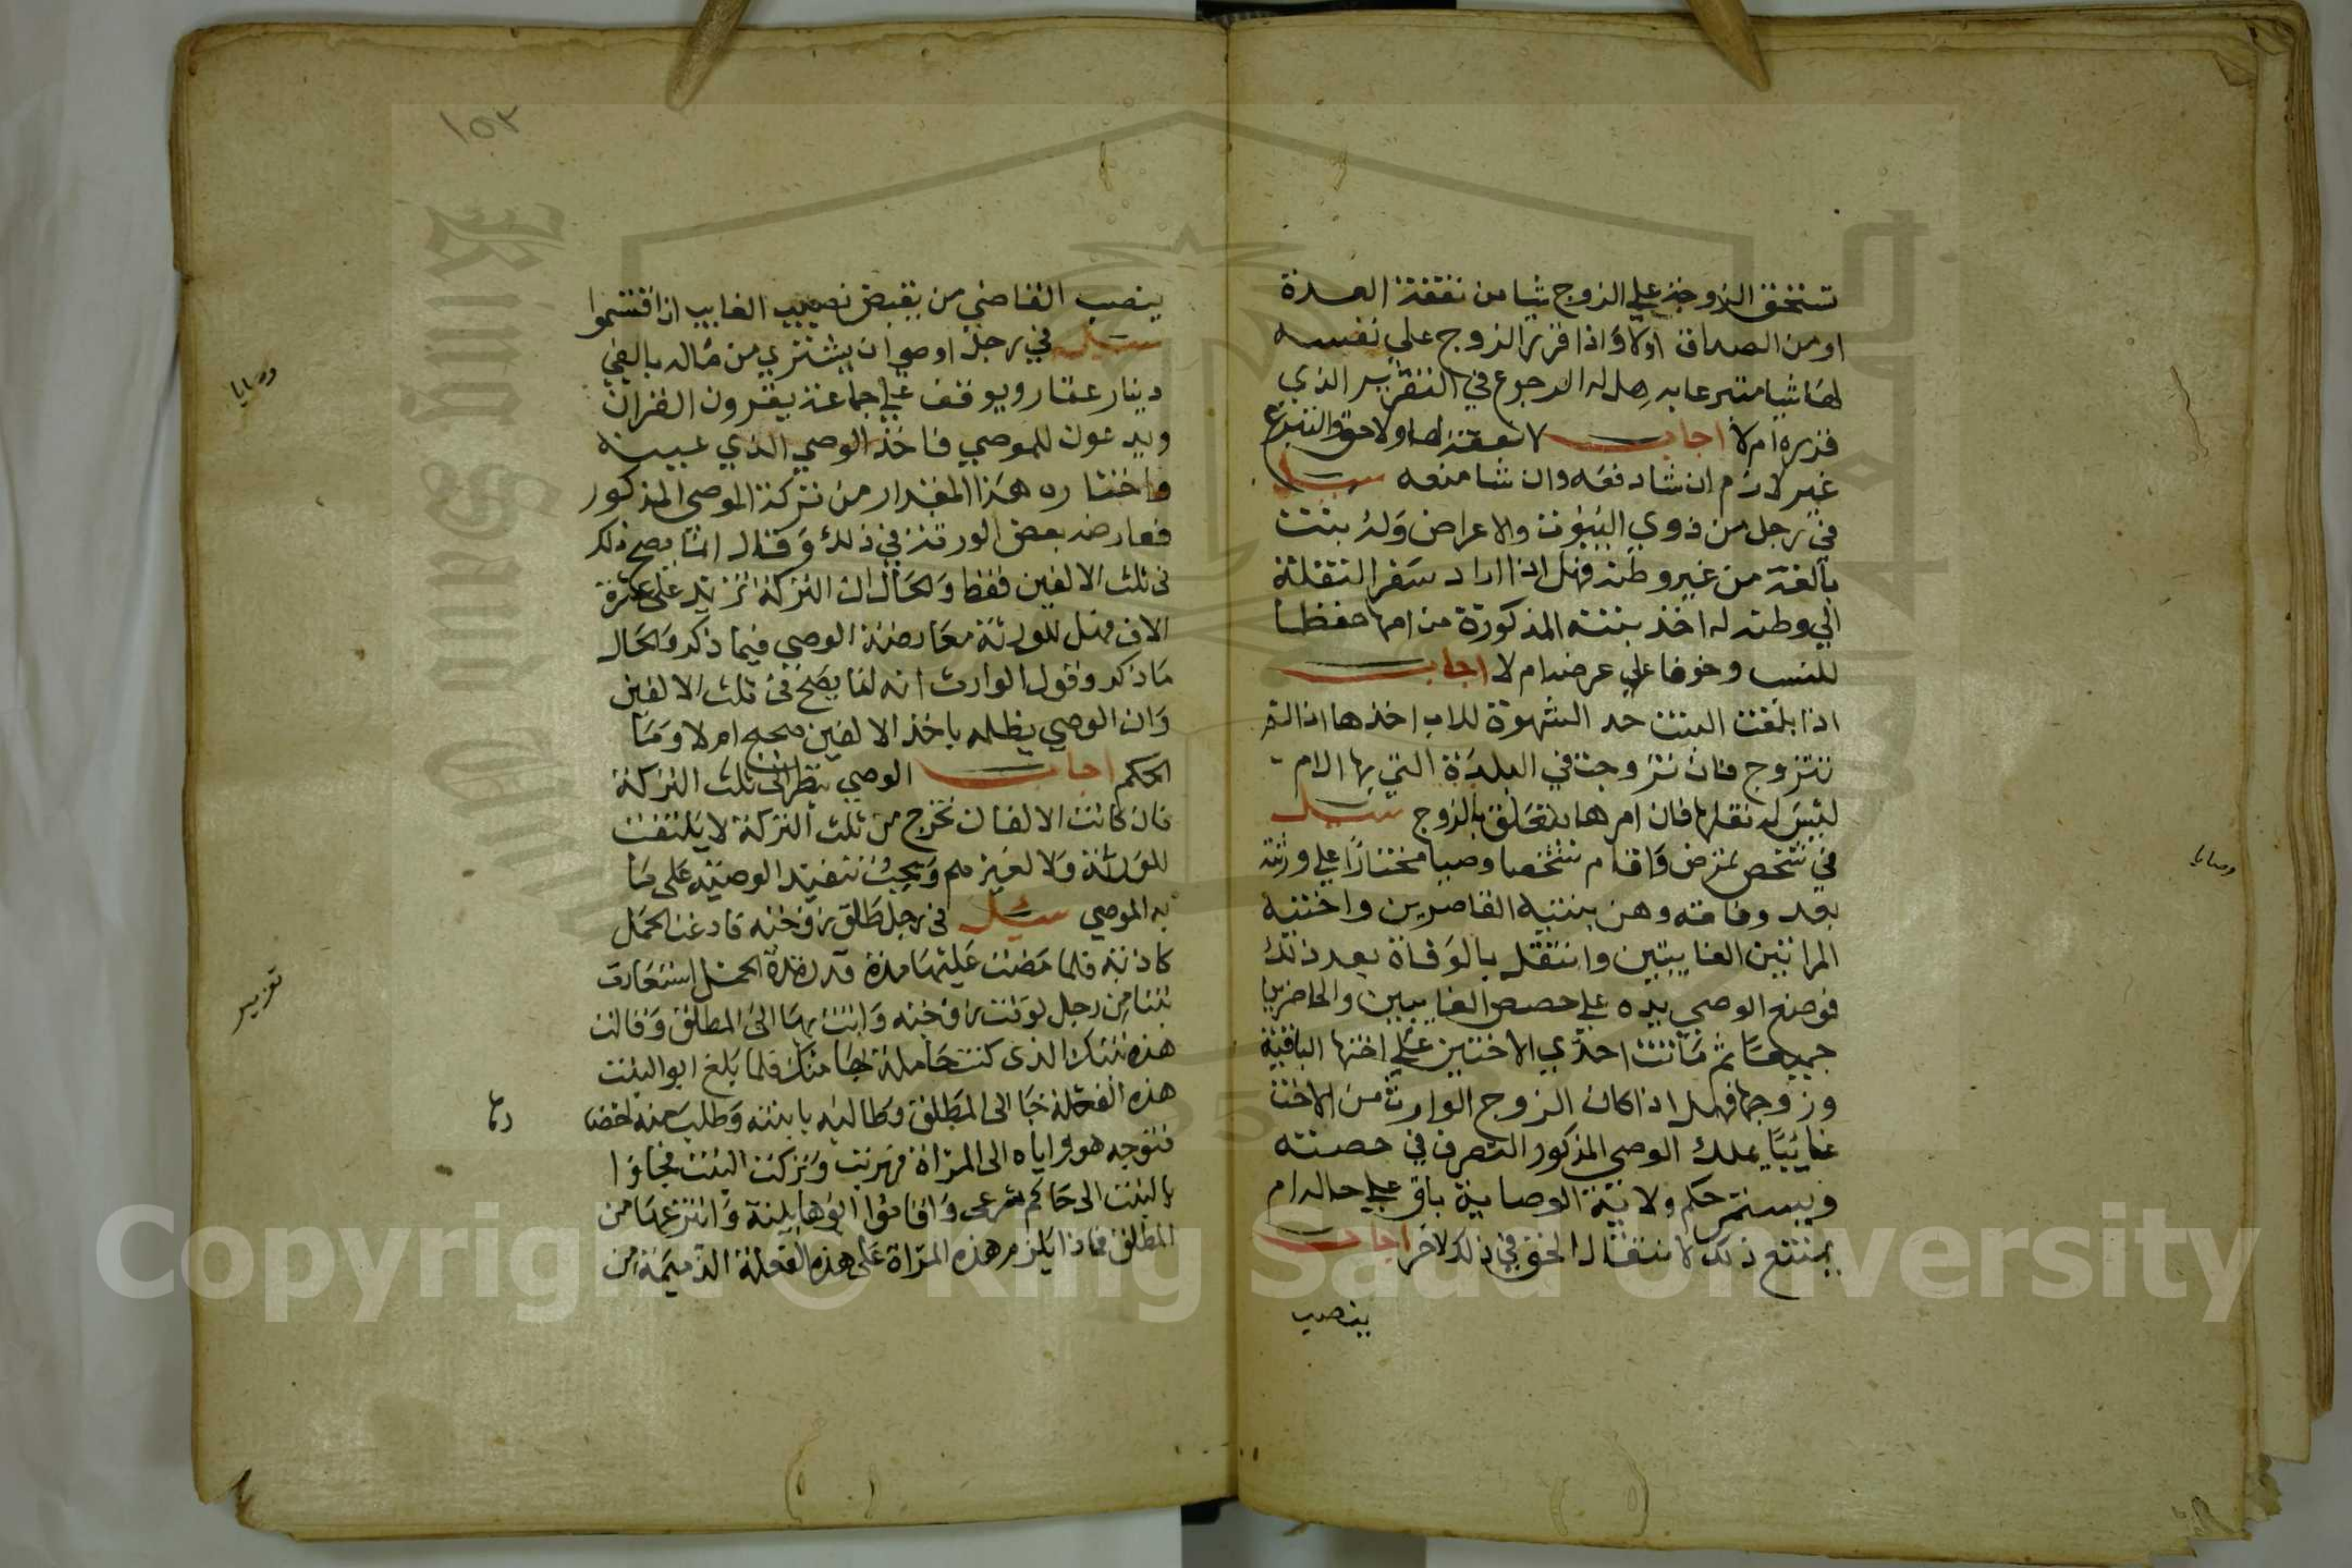 تستحق الزوجة علي الزوج شيا من نفقة العدة
او من الصداق اولا واذا قرر الزوج علي نفسه
لها شيا متبرعا به هل له الرجوع في التقرير الذي
قرره ام لا اجاب لا نفقة لها ولا حق والتبرع
غير لازم ان شا دفعه وان شا منعه سيل
في رجل من ذوي البيوت والاعراض وله بنت
بالغة من غير وطنه فهل اذا اراد سفر النقلة
الي وطنه له اخذ بنته المذكورة من امها حفظا
للنسب وخوفا علي عرضه ام لا اجاب
اذا بلغت البنت حد الشهوة للاب اخذها اذا لم
تتزوج فان تزوجت في البلدة التي بها الام
ليس له نقلها فان امرها يتعلق بالزوج سيل
في شخص تمرض واقام شخصا وصيا مختارا علي ورثته
بعد وفاته وهن بنتيه القاصرين واختيه
المراتين الغايبتين وانتقل بالوفاة بعد ذلك
فوضع الوصي يده علي حصص الغايبين والحاضرين
جميعا ثم ماتت احدي الاختين علي اختها الباقية
وزوجها فهل اذا كان الزوج الوارث من الاخت
غائبا يملك الوصي المذكور التصرف في حصته
ويستمر حكم ولاية الوصاية باق علي حاله ام
يمتنع ذلك لانتقال الحق في ذلك لاخر اجاب
ينصب
وصايا
١٥٣
ينصب القاضي من يقبض نصيب الغايب اذا اقتسموا
سيل في رجل اوصي ان يشتري من ماله بالفي
دينار عقار ويوقف علي جماعة يقرون القران
ويدعون للموصي فاخذ الوصي الذي عينه
واختاره هذا المقدار من تركة الموصي المذكور
فعارضه بعض الورثة في ذلك وقال انما يصح ذلك
في ثلث الالفين فقط والحال ان التركة تزيد على عشرة
الاف فهل للورثة معارضة الوصي فيما ذكر والحال
ما ذكر وقول الوارث انه انما يصح في ثلث الالفين
وان الوصي يظلمه باخذ الالفين صحيح ام لا وما
الحكم اجاب الوصي ينظر الى ثلث التركة
فان كانت الالفان تخرج من ثلث التركة لا يلتفت
للورثة ولا لغيرهم ويجب تنفيذ الوصية على ما
به الموصي سئل في رجل طلق زوجته فادعت الحمل
كاذبة فلما مضت عليها مدة قدر مدة الحمل استعارت
بنتا من رجل توفت زوجته واتت بها الى المطلق وقالت
هذه بنتك الذى كنت حاملة بها منك فلما بلغ ابو البنت
هذه الفعلة جا الى المطلق وطالبه بابنته وطلب منه
فتوجه هو واياه الى المراة فهربت وتركت البنت فجاؤا
بالبنت الى حاكم شرعى واقاموا ابوها بينة وانتزعها من
المطلق فماذا يلزم هذه المراة على هذه الفعلة الذميمة من
وصايا
تعزير